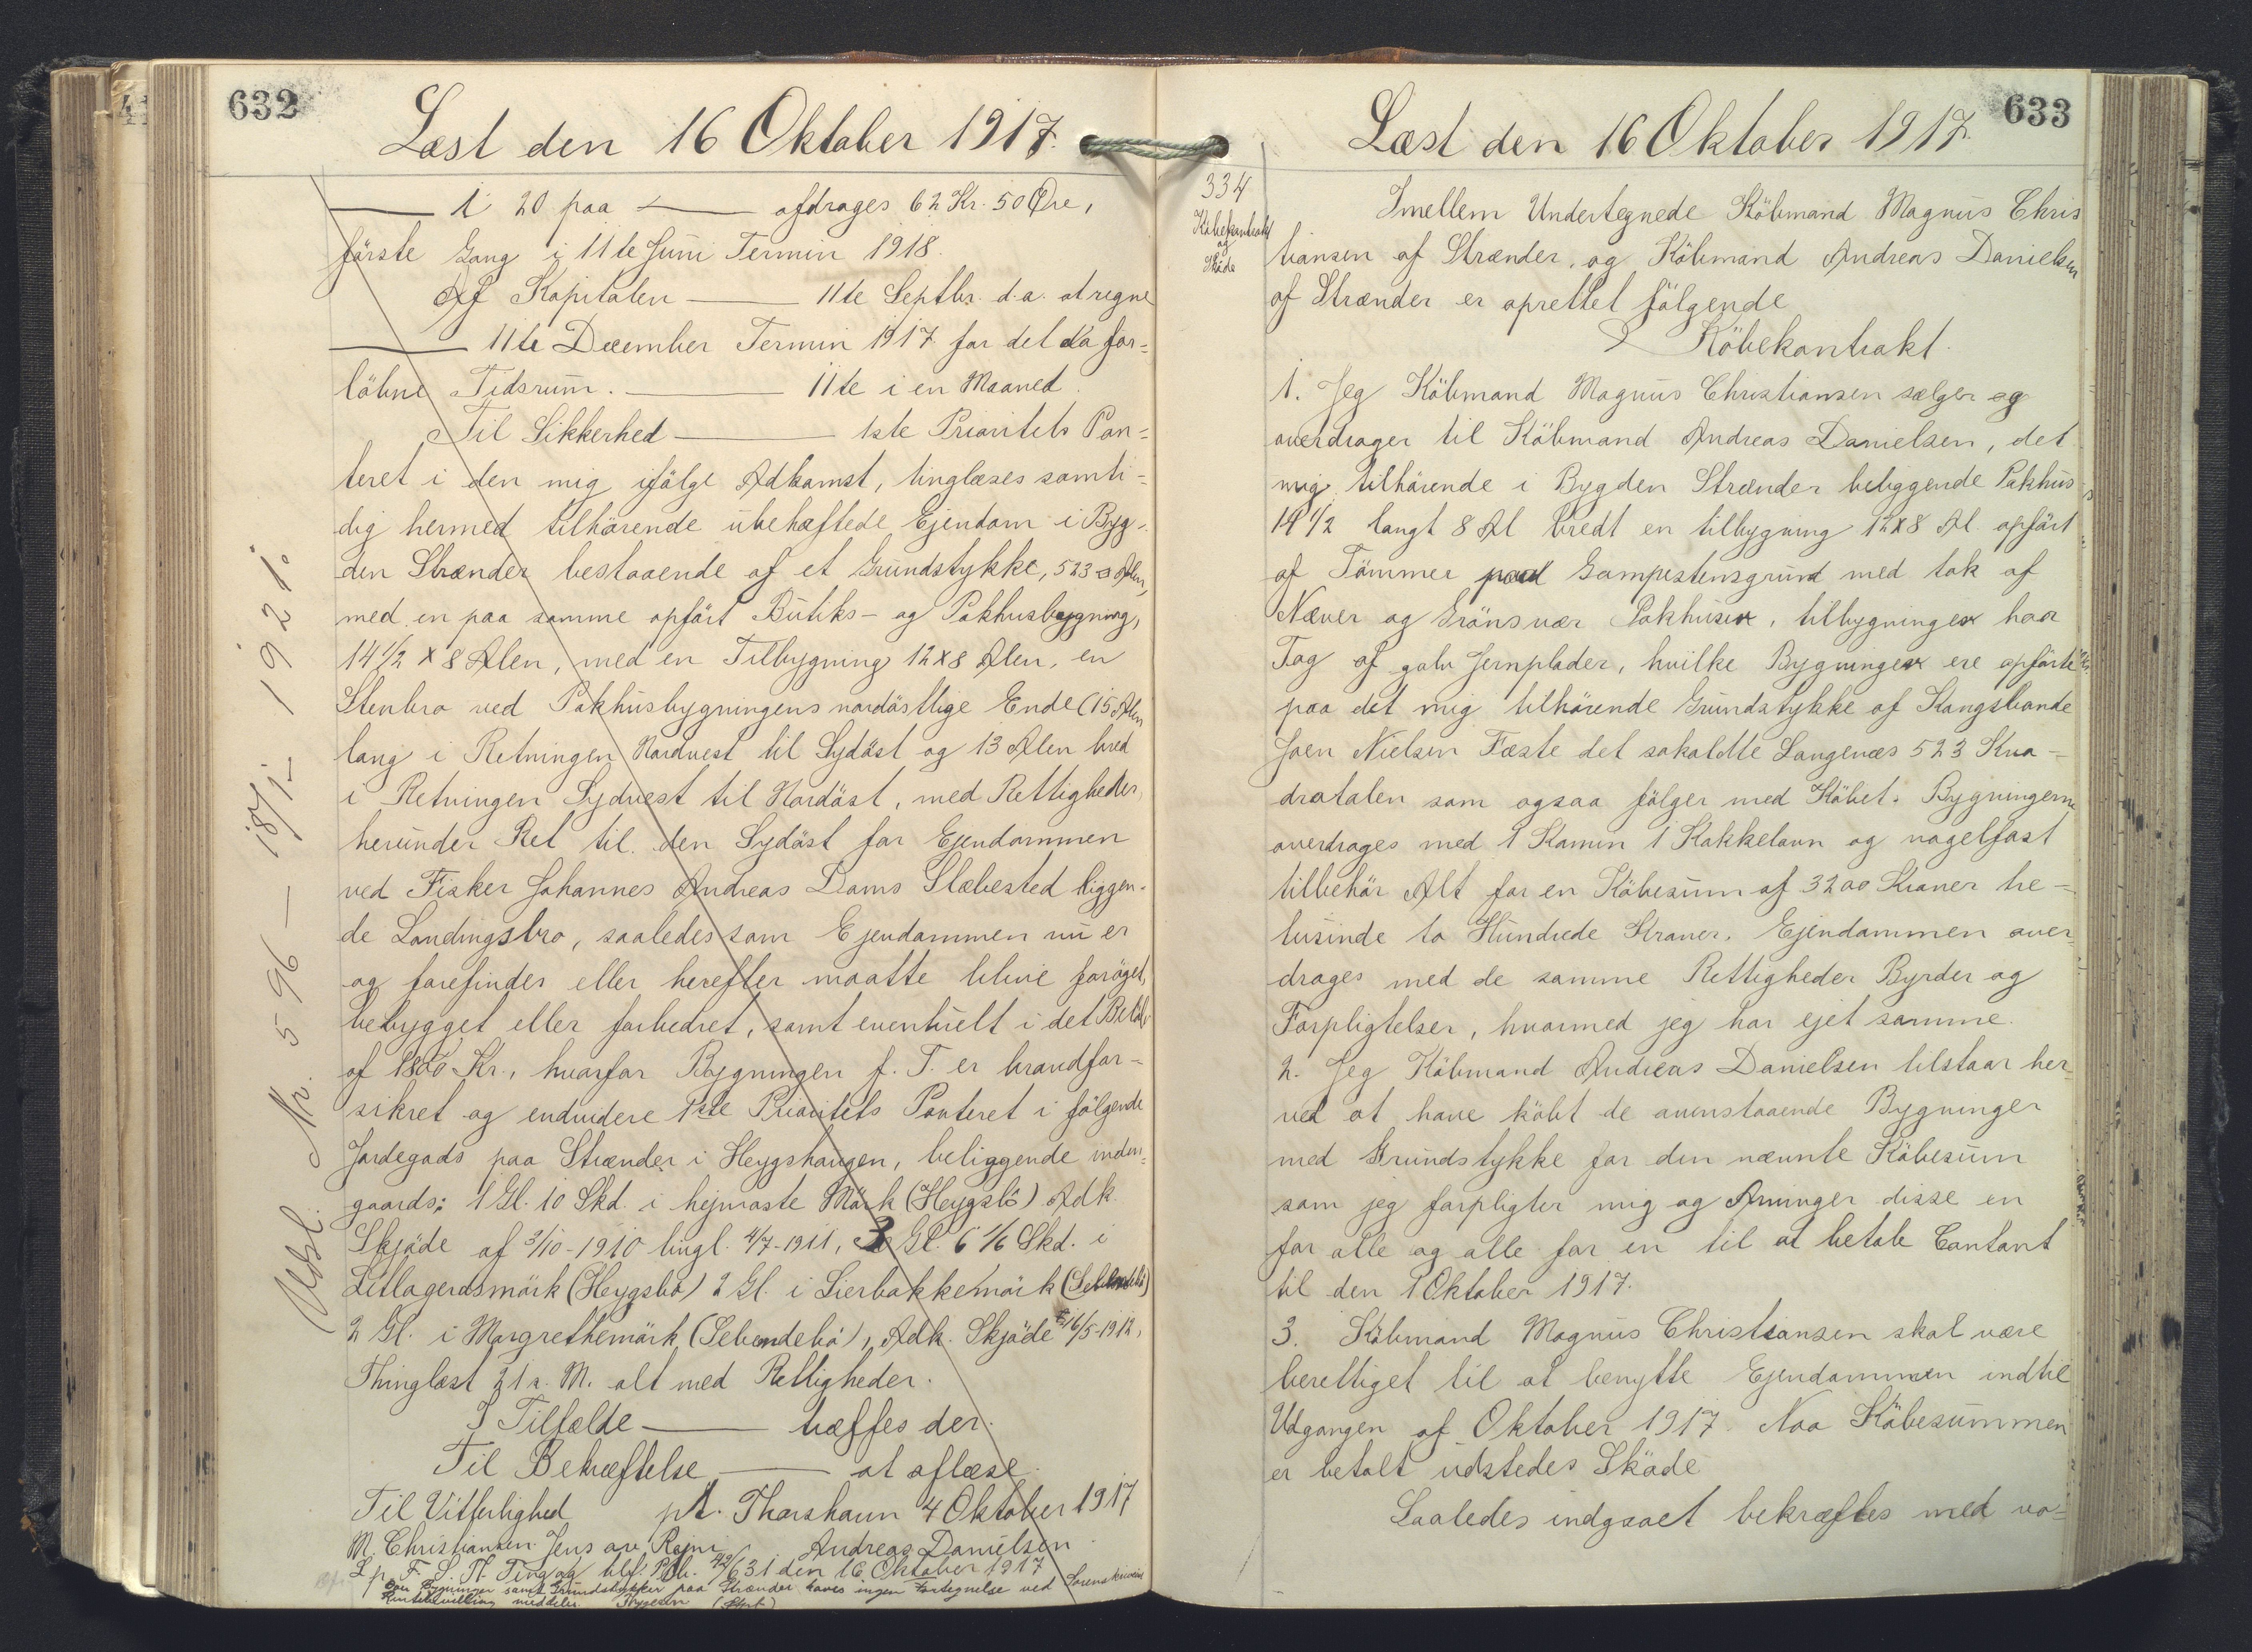 632
Læst den 16 Oktober 1917.
—— i 20 paa —— afdrages 62 Kr. 50 Øre,
første Gang i 11te Juni Termin 1918.
Af Kapitalen —— 11te Septbr. d.a. at regne
—— 11te December Termin 1917 for det da for=
løbne Tidsrum. —— 11te i en Maaned.
Til Sikkerhed —— 1ste Prioritets Pan=
teret i den mig ifølge Adkomst, tinglæses samti=
dig hermed tilhørende ubehæftede Ejendom i Byg=
den Strænder bestaaende af et Grundstykke, 523 □ Alen,
med en paa samme opført Butiks- og Pakhusbygning,
14½ x 8 Alen, med en Tilbygning 12 x 8 Alen, en
Stenbro ved Pakhusbygningens nordøstlige Ende (15 Alen
lang i Retningen Nordvest til Sydøst og 13 Alen bred
i Retningen Sydvest til Nordøst, med Rettigheder,
herunder Ret til den Sydøst for Ejendommen
ved Fisker Johannes Andreas Dams Slæbested liggen=
de Landingsbro, saaledes som Ejendommen nu er
og forefindes eller herefter maatte blive forøget,
bebygget eller forbedret, samt eventuelt i det Beløb
af 1800 Kr., hvorfor Bygningen p. T. er brandfor=
sikret og endvidere 1ste Prioritets Panteret i følgende
Jordegods paa Strænder i Heygshaugen, beliggende inden=
gaards: 1 Gl. 10 Skd. i hejmaste Mørk (Heygsbø) Adk.
Skjøde af 3/10-1910 tingl. 4/7-1911, 3 Gl. 6 1/6 Skd. i
Litlagerdsmørk (Heygsbø) 2 Gl. i Lierbakkemørk (Sebendebø)
2 Gl. i Margrethemørk (Sebendebø), Adk. Skjøde 16/5-1912,
Thinglæst 21 s. M. alt med Rettigheder.
I Tilfælde —— træffes der.
Til Bekræftelse —— at aflæse.
Til Vitterlighed pt. Thorshavn 4 Oktober 1917
M. Christiansen Jens av Reyni Andreas Danielsen
L. p. F. S. Th. Ting og tilf. P.Pb. 42/631 den 16 Oktober 1917
Om Bygninger samt Grundstykker paa Strænder haves ingen Fortegnelse ved Sorenskriveriet
meddeles
Udsl. Nr. 596 — 18/1- 1921.
633
Læst den 16 Oktober 1917.
334
Købekontrakt
og
Skøde
Imellem Undertegnede Købmand Magnus Chris
tiansen af Strænder, og Købmand Andreas Danielsen
af Strænder er oprettet følgende
Købekontrakt.
1. Jeg Købmand Magnus Christiansen sælger og
overdrager til Købmand Andreas Danielsen, det
mig tilhørende i Bygden Strænder beliggende Pakhus
14 1/2 langt 8 Al bredt en tilbygning 12 x 8 Al. opført
af Tømmer paa Gampestensgrund med tak af
Næver og Grønsvær Pakhuset, tilbygningen har
Tag af galv Jernplader, hvilke Bygninger ere opførte
paa det mig tilhørende Grundstykke af Kongsbonde
Joen Nielsen Fæste det sakaldte Langenæs 523 Kva=
dratalen som ogsaa følger med Købet. Bygningerne
overdrages med 1 Kamin 1 Kakkelovn og nagelfast
tilbehør Alt for en Købesum af 3200 Kroner tre=
tusinde to Hundrede Kroner. Ejendommen over=
drages med de samme Rettigheder Byrder og
Forpligtelser, hvormed jeg har ejet samme.
2. Jeg Købmand Andreas Danielsen tilstaar her=
ved at have købt de ovenstaaende Bygninger
med Grundstykke for den nævnte Købesum
som jeg forpligter mig og Arvinger disse en
for alle og alle for en til at betale Contant
til den 1 Oktober 1917.
3. Købmand Magnus Christiansen skal være
berettiget til at benytte Ejendommen indtil
Udgangen af Oktober 1917. Naa Købesummen
er betalt udstedes Skøde
Saaledes indgaaet bekræftes med vo=